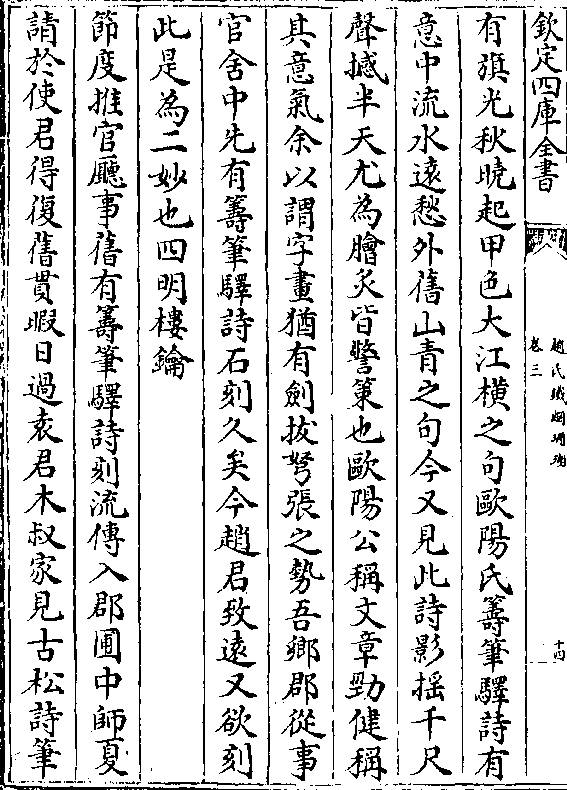 欽定四庫全書
趙氏鐵網珊瑚
卷三
十四
有旗光秋曉起甲色大江橫之句歐陽氏籌筆驛詩有
意中流水遠愁外舊山青之句今又見此詩影揺千尺
聲撼半天尤為膾炙皆警䇿也歐陽公稱文章勁健稱
其意氣余以謂字畫猶有劍拔弩張之勢吾鄉郡從事
官舍中先有籌筆驛詩石刻久矣今趙君致遠又欲刻
此是為二妙也四明樓鑰
節度推官廳事舊有籌筆驛詩刻流傳入郡圃中師夏
請於使君得復舊貫暇日過袁君木叔家見古松詩筆